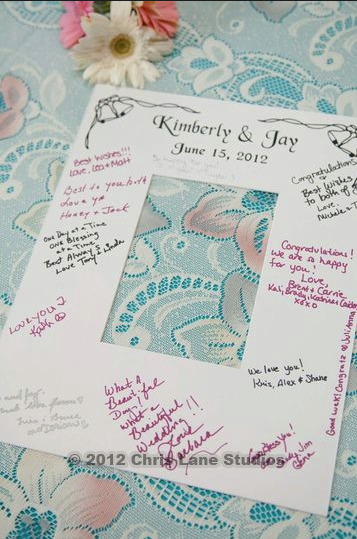 Kimberly & Jay
June 15, 2012
Best Wishes!!!
Love, Lea & Matt
Best to you both
Love ya
Honey & Jack
One Day at a Time
One Blessing
at a Time
Best Always
Love Tony & Linda
Love You J.
Kath
Congratulations
Best Wishes
to both of
Love,
Michele &
Congratulations!
We are so happy
for you!
Love,
Brent & Carrie
Kali, Brady,
xoxo
Good Luck! Congratz
We love you!
Kris, Alex & Shane
What A
Beautiful
Day!
What a
Beautiful
Wedding!!
Love
Barbara
© 2012 Chris Lane Studios